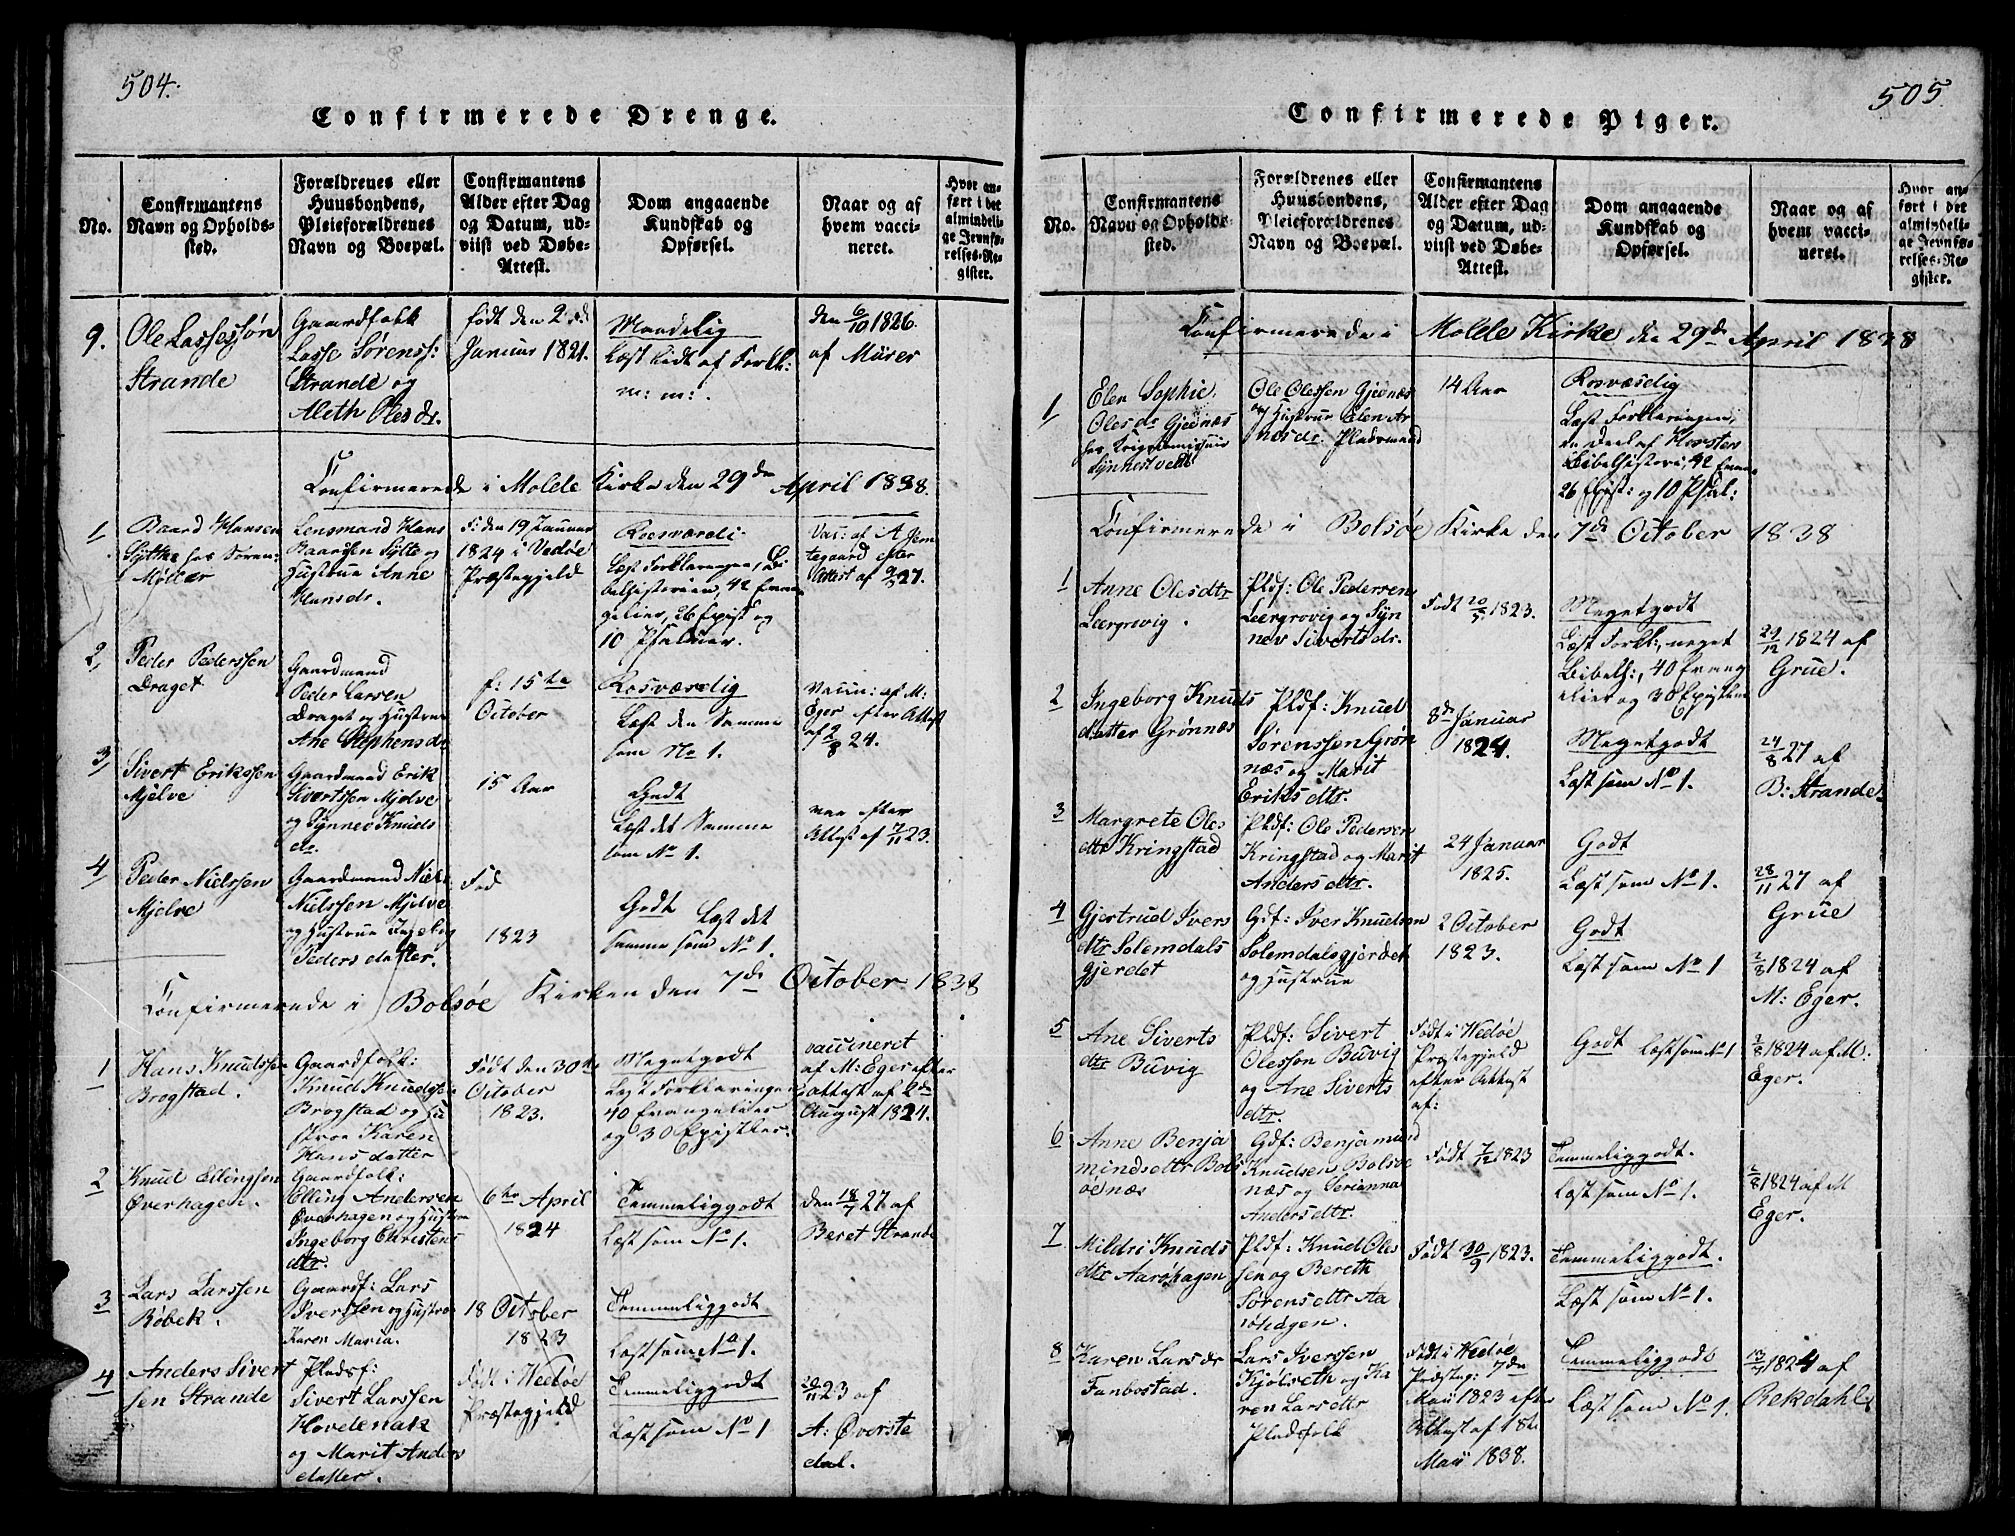 504.
Confirmerede Drenge.
No.
Confirmantens
Navn og Opholds-
sted.
Forældrenes eller
Huusbondens,
Pleieforældrenes
Navn og Boepæl.
Confirmantens
Alder efter Dag
og Datum, ud-
viist ved Døbe-
Attest.
Dom angaaende
Kundskab og
Opførsel.
Naar og af
hvem vacci-
neret.
Hvor an-
ført i det
almindeli-
ge Jevnfø-
relses-Re-
gister.
9.
Ole Lassessøn
Strande
Gaardfolk
Lasse Sørenss:
Strande og
Aleth Olesdr.
født den 2den
Januar 1821.
Maadelig
Læst lidt af Forkl:
m: m:.
den 6/10 1826.
af Mürer
Confirmerede i Molde Kirke den 29de April 1838.
1
Baard Hansen
Sylthe hos Søren
Møller
Lensmand Hans
Baardsen Sylte og
Hustrue Anne
Hansdr.
F: den 19 Januar
1824 i Vedøe
Præstegjeld
Roesværdi:
Læst Forklaringen, Bi
belhistorien, 42 Evan
gelier, 26 Epist og
10 Psalmer.
Vac: af A Jem
tegaard efter
Attest af
27.
2,
Peder Pederssen
Draget
Gaardmand
Peder Larsen
Draget og Hustrue
Ane Stephensdr
f: 15te
October
Rosværdig
Læst den Samme
som No 1.
Vaccin: af M:
Eger efter Attest
af 2/8 24.
3,
Sivert Erikssen
Mjelve
Gaardmand Erik
Sivertssen Mjelve
og Synnev Knuds
dr.
15 Aar
Godt
Læst det Samme
som No 1.
vac efter
Attest af 7/11 23.
4
Peder Nielssen
Mjelve
Gaardmand Niels
Nielssen Mjelve
og Hustrue Ingeb:
Peders datter.
Fød
1823
Godt Læst det
samme som No 1.
Confirmerede i Bolsøe Kirken den 7de October 1838
1
Hans Knudssen
Brogstad.
Gaardfolk:
Knud Knudss:
Brogstad og Hu
stroe Karen
Hans datter
Født den 30te
October
1823.
Megetgodt
Læst Forklaringen
40 Evangelier
og 30 Epistler.
vaccineret
af M: Eger efter
attest af 2den
August 1824.
2
Knud Ellingsen
Øverhagen.
Gaardfolk:
Elling Andersen
Øverhagen og Hustrue
Ingeborg Christens
dtr.
6te April
1824
Temmeliggodt
Læst som No 1.
den 18/7 27 af
Beret Strande
3
Lars Larssen
Røbek.
Gaardf: Lars
Iverssen og Hustroe
Karen Maria.
18 October
1823
Temmeliggodt
Læst som No 1.
4
Anders Sivert
sen Strande
Pladsf:
Sivert Larssen
Hovedenak
og Marit Anders
datter.
Født i Wedøe
Præstegjeld
Temmeliggodt
Læst som No 1
20/11 23 af
A: Øverste
dal.
505
Confirmerede Piger.
No.
Confirmantens
Navn og Opholds-
sted.
Forældrenes eller
Huusbondens,
Pleieforældrenes
Navn og Boepæl.
Confirmantens
Alder efter Dag
og Datum, ud-
viist ved Døbe-
Attest.
Dom angaaende
Kundskab og
Opførsel.
Naar og af
hvem vacci-
neret.
Hvor an-
ført i det
almindeli-
ge Jevnfø-
relses-Re-
gister.
Confirmerede i Molde Kirke den 29de April 1838
1,
Elen Sophie
Olesdr Gjednæs
hos
Synnestvedt
Ole Olessen Gjednæs
og Hustrue Elen Ar
nesdr: Pladsmand
14 Aar
Rosværdig
Læst Forklaringen,
en Deel af Horsters
Bibelhistori, 42 Evan
26 Epist: og 10 Psal:
Confirmerede i Bolsøe Kirke den 7de October 1838
1
Anne Olesdtr
Leergrovig.
Pldf: Ole Pedersen
Leergrovig og Syn
nev Sivertsdr.
Født 20/5 1823.
Megetgodt
Læst Forkl:, noget
Bibelh:, 40 Evang
elier og 30 Epistler
29/12 1824 af
Grue.
2
Ingeborg Knuds
datter Grønnæs
Pldf: Knud
Sørenssen Grøn
næs og Marit
Eriksdtr.
8de Januar
1824.
Megetgodt
Læst som No 1.
24/8 27 af
B: Strande.
3
Margrete Oles
dtr Kringstad
Pldf: Ole Pedersen
Kringstad og Marit
Andersdtr.
24 Januar
1825.
Godt
Læst som No 1.
28/11 27 af
Grue
4
Gjertrud Ivers
dtr Solemdals
gjerdet
Gdf: Iver Knudsen
Solemdalsgjerdet
og Hustrue
2 October
1823.
Godt
Læst som No 1
2/8 1824 af
M: Eger.
5
Ane Siverts
dtr Buvig
Pldf: Sivert
Olessøn Buvig
og Ane Siverts
dtr.
Født i Wedøe
Præstegjeld
efter Attest
af:
Godt Læst som No 1
2/8 1824 af M:
Eger.
6
Anne Benja
mindsdtr Bols
øenæs
Gdf: Benjamind
Knudsen Bolsøe
næs og Serianna
Andersdtr.
Født 7/12 1823
Temmeliggodt.
Læst som No 1.
2/8 1824 af M
Eger.
7
Mildri Knuds
dtr Aarøhagen
Pldf: Knud Oles
sen og Bereth
Sørensdtr Aa
røhagen.
Født 30/9 1823.
Temmeliggodt.
Læst som No 1.
8
Karen Larsdr
Fanbostad.
Lars Iverssen
Kjølseth og Ka
ren Larsdtr
Pladsfolk
Født i Wedøe
Præsteg: 7de
Maii 1823 efter
Attest af 18te
Maii 1838.
Temmeliggodt
Læst som No 1.
13/7 1824 af
Rekdahl